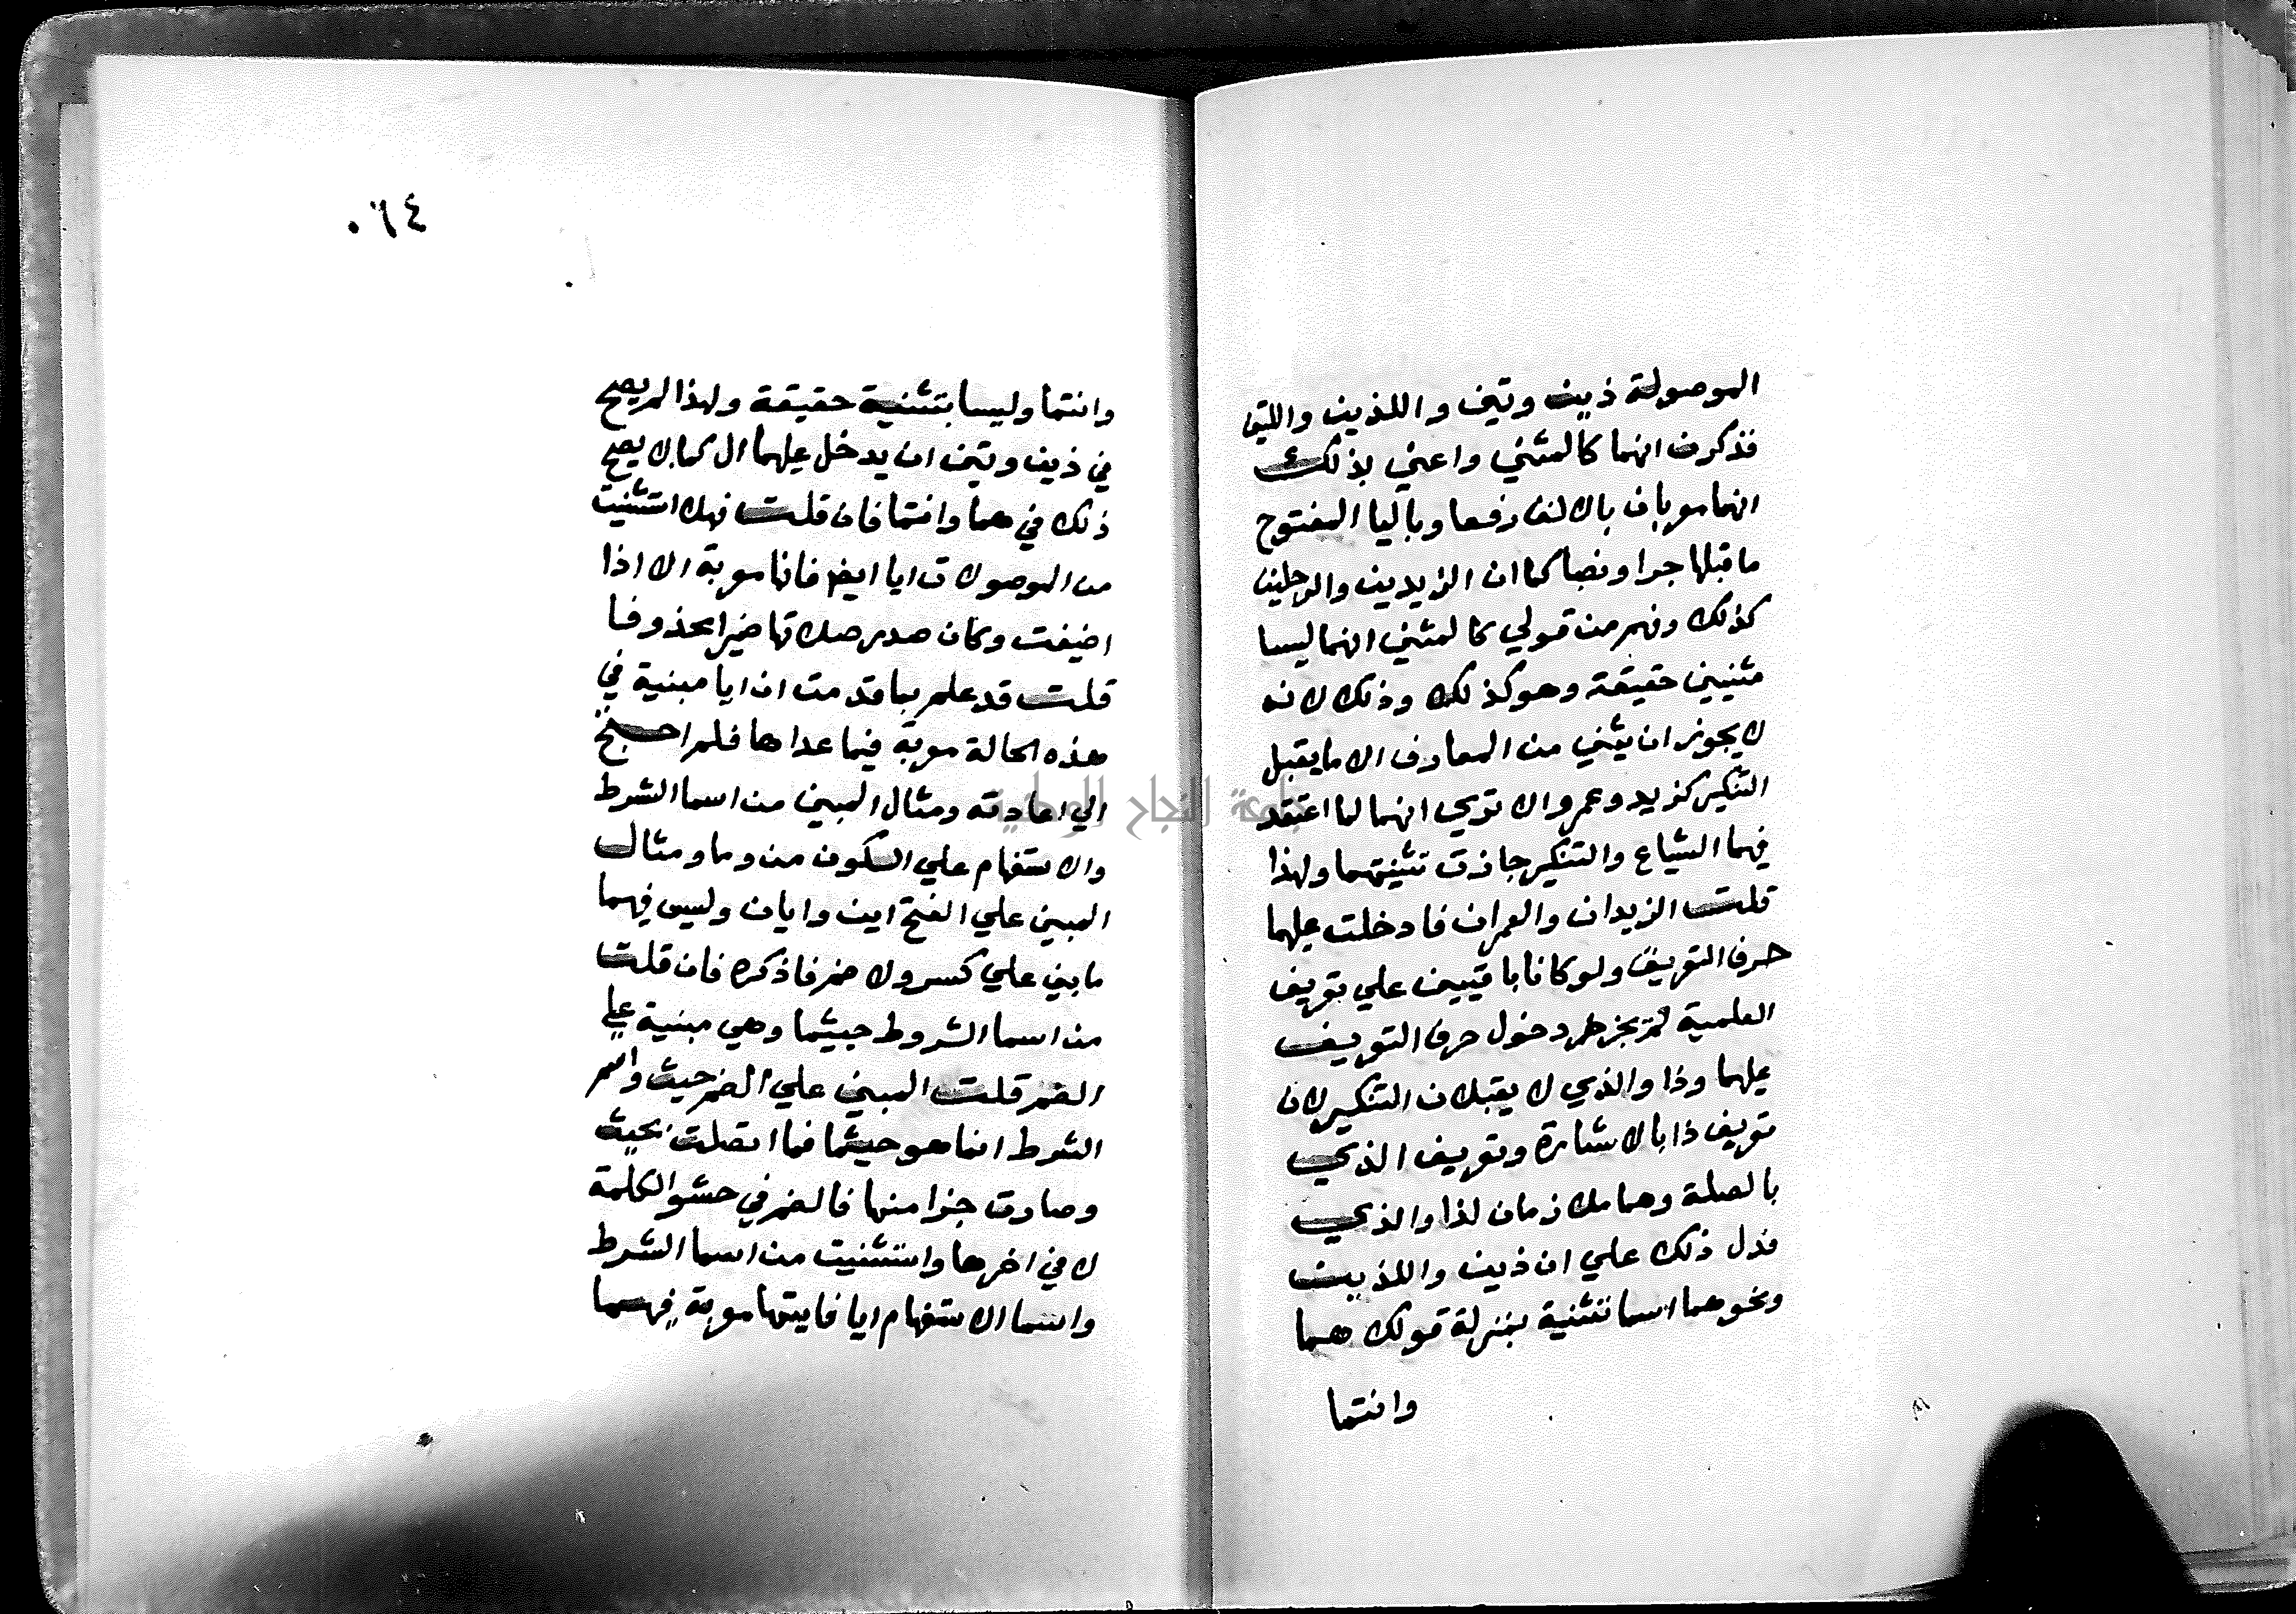 الموصولة ذين وتين واللذين واللتين
فذكرت انهما كالمثني واعني بذلك
انهما معربان بالالف رفعا وباليا المفتوح
ما قبلها جرا ونصبا كما ان الزيدين والرجلين
كذلك وفهم من قولي كالمثني انهما ليسا
مثنيين حقيقة وهو كذلك وذلك لانه
لا يجوز ان يثني من المعارف الا ما يقبل
التنكير كزيد وعمرو الا تري انهما لما اعتقد
فيهما الشياع والتنكير جازت تثنيتهما ولهذا
قلت الزيدان والعمران فادخلت عليهما
حرف التعريف ولو كانا باقيين علي تعريف
العلمية لم يجز دخول حرف التعريف
عليهما وذا والذي لا يقبلان التنكير لان
تعريف ذا بالاشارة وتعريف الذي
بالصلة وهما ملازمان لذا والذي
فدل ذلك علي ان ذين واللذين
ونحوهما اسما تثنية بمنزلة قولك هما
وانتما
٠٦٤
وانتما وليسا بتثنية حقيقة ولهذا لم يصح
في ذين وتين ان يدخل عليهما ال كما لا يصح
ذلك في هما وانتما فان قلت فهلا استثنيت
من الموصولات ايا ايض فانها معربة الا اذا
اضيفت وكان صدر صلاتها ضميرا محذوفا
قلت قد علم بما قدمت ان ايا مبنية في
هذه الحالة معربة فيما عداها فلم احتج
الي اعادته ومثال المبني من اسما الشرط
والاستفهام علي السكون من وما ومثال
المبني علي الفتح اين وايان وليس فيهما
ما بني علي كسر ولا ضم فاذكره فان قلت
من اسما الشروط حيثما وهي مبنية علي
الضم قلت المبني علي الضم حيث واسم
الشرط انما هو حيثما فما اتصلت بحيث
وصارت جزا منها فالضم في حشو الكلمة
لا في اخرها واستثنيت من اسما الشرط
واسما الاستفهام ايا فايتها معربة فيهما
جامعة النجاح الوطنية